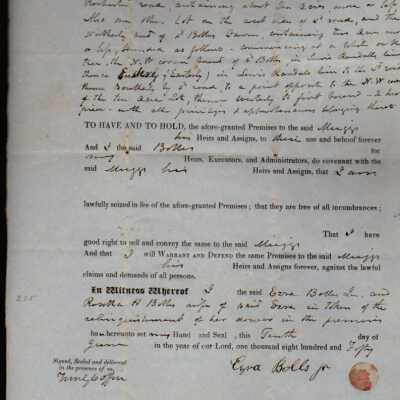 Rochester road, containing about Ten Acres more or less,
also one other Lot on the west side of sd road, and the
Northerly end of sd Bolles Farm, containing two Acres more
or less, bounded as follows - commencing at a stake on the
N.W. corner of sd Bolles, in Lewis Randalls
thence Easterly (Easterly) in Lewis Randals line to the sd road
thence Southerly by sd road to a point opposite to the N.W. corner
of the ten Acre Lot, thence westerly to first bound
with all the privileges & appurtenances belonging thereto
TO HAVE AND TO HOLD, the afore-granted Premises to the said Meiggs
his Heirs and Assigns, to their use and behoof forever
And I the said Bolles for
my Heirs, Executors, and Administrators, do covenant with the
said Meiggs his Heirs and Assigns, that I am
lawfully seized in fee of the afore-granted Premises; that they are free of all incumbrances;
That I have
good right to sell and convey the same to the said Meiggs
And that I will WARRANT AND DEFEND the same Premises to the said Meiggs
his Heirs and Assigns forever, against the lawful
claims and demands of all persons.
In Witness Whereof I the said Ezra Bolles Jr. and
H Bolles wife of said Ezra in token of the
relinquishment of her dower in the premises
have hereunto set my Hand and Seal, this Tenth day of
June in the year of our Lord, one thousand eight hundred and Fifty
Signed, Sealed and delivered
in the presence of us
Ezra Bolls jr